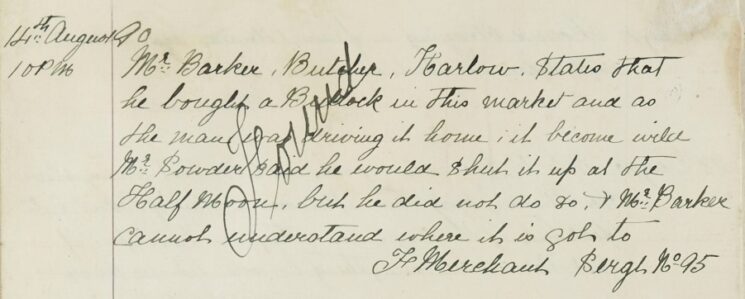 14th August 90
10 PM
Mr. Barker, Butcher, Harlow, States that
he bought a Bullock in this market and as
the man was driving it home, it become wild
Mr. Powder said he would shut it up at the
Half Moon, but he did not do so, & Mr. Barker
cannot understand where it is got to
F Merchant Sergt No 95
Found